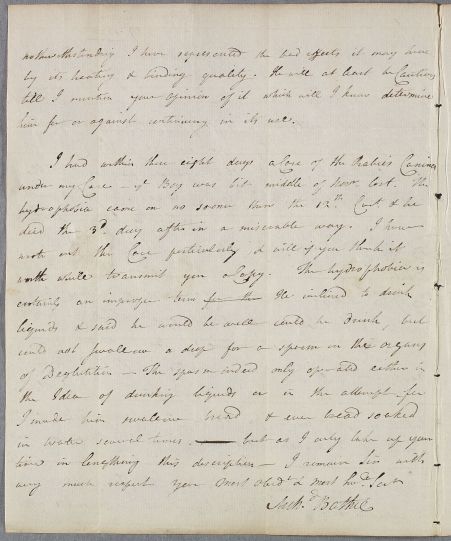 notwithstanding I have represented the bad effects it may have
by its heating & binding quality. He will at least be Cautious
till I mention your opinion of it which will I know determine
him for or against continuing in its use.
I had within these eight days a Case of the Rabies Canina
under my Care – yͤ Boy was bit middle of Novr. last. The
hydrophobia came on no sooner than the 12th Curt & he
died the 3d. day after in a miserable way. I have
wrote out the Case particularly & will if you think it
worth while transmit you a Copy. The hydrophobia is
certainly an improper term for the He inclined to drink
liquids & said he would be well could he Drink, but
could not swallow a drop for a spasm in the organs
of Deglutition – The spasm indeed only operated either in
the Idea of drinking liquids or in the attempt for
I made him swallow bread & even bread soaked
in water several times. but as I only take up your
time in lengthening this description – I remain Sir with
very much respect your most Obedt & most hule Servt